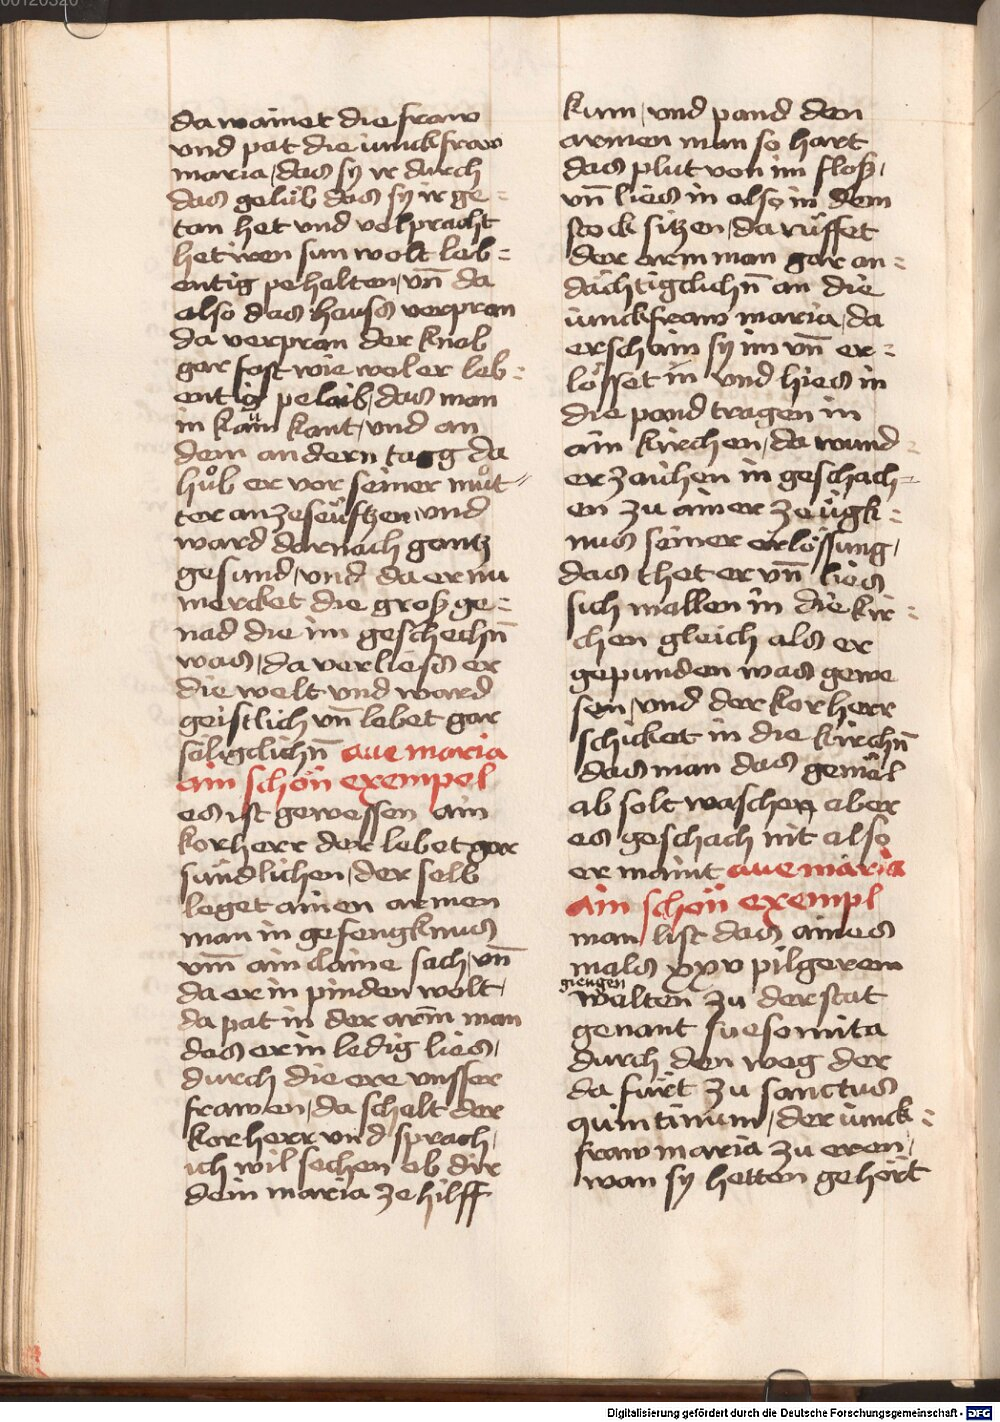 da wainet die fraw
vnd pat die iunckfraw
maria / das sy ir durch
das gelüb das sy ir ge=
tan het vnd volpracht
het iren sun wolt leb=
entig pehalten / vn̄ da
also das hauss verpran
da verpran der knab
gar fast wie wol er leb=
entig pelaib / das man
in kam̈ kant / vnd an
dem andern tagg da
hůb er vor seiner mů̊t=
ter an ze seüftzen / vnd
ward darnach gantz
gesund / vnd da er nu
mercket die groß ge=
nad die im geschechn̄
was / da verliess er
die welt vnd ward
geistlich vn̄ lebet gar
säligclichn̄ aue maria
ain schön exempel
es ist gewessen ain
korherr der lebet gar
sündlichen / der selb
leget ainen armen
man in gefengknus
vm̄ ain claine sach / vn̄
da er in pinden wolt /
da pat in der arm̄ man
das er in ledig lies /
durch die ere vnsser
frawen / da schalt der
korherr vnd sprach /
ich wil sechen ob dir
dein maria ze hilff
kum / vnd pand den
armen man so hart
das plut von im floß /
vn̄ lies in also in dem
stock sitzen / da rüffet
der arm man gar an=
dächtigclichn̄ an die
iunckfraw maria / da
erschain sy im vn̄ er=
lösset in vnd hies in
die pand tragen in
ain kirchen / da wund=
erzaichen in geschach=
en zu ainer zeügk=
nus seiner erlössung /
das thet er vn̄ lies
sich mallen in die kir=
chen gleich als er
gepunden was gewe
sen / vnd der korherr
schicket in die kirchn̄
das man das gemäl
ab solt waschen aber
es geschach nit also
er maint aue maria
ain schön exempl
man list das aines
mals xxv pilgerem
giengen
walten zu der stat
genant suesomita
durch den weg der
da fürt zu sanctus
quintinum / der iunck=
fraw maria zu eren /
wan sy hetten gehört
Digitalisierung gefördert durch die Deutsche Forschungsgemeinschaft - DFG